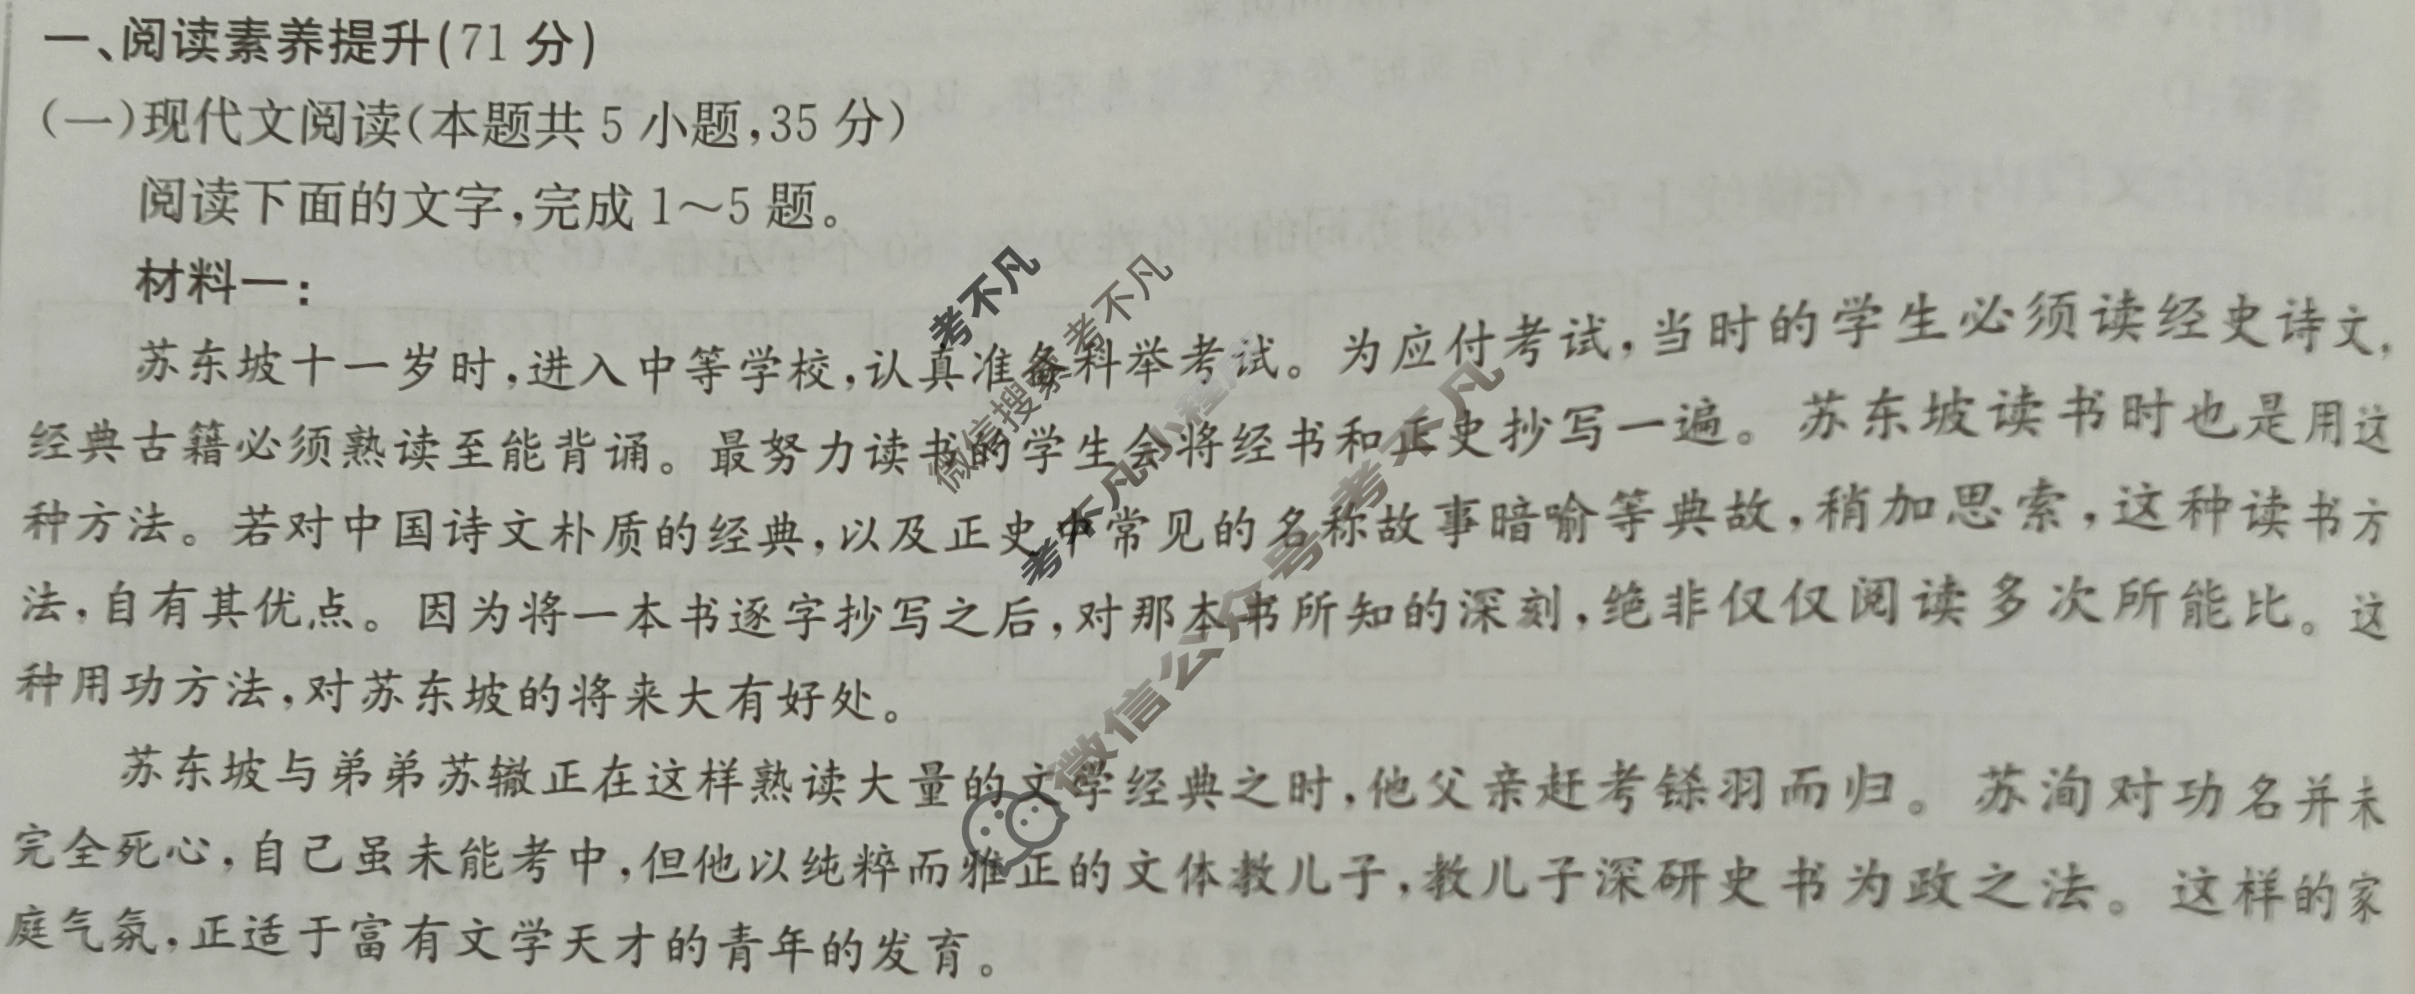 一、阅读素养提升(71 分)
(一)现代文阅读(本题共 5 小题,35 分)
阅读下面的文字,完成 1～5 题。
材料一:
苏东坡十一岁时,进入中等学校,认真准备科举考试。为应付考试,当时的学生必须读经史诗文,
经典古籍必须熟读至能背诵。最努力读书的学生会将经书和正史抄写一遍。苏东坡读书时也是用这
种方法。若对中国诗文朴质的经典,以及正史中常见的名称故事暗喻等典故,稍加思索,这种读书方
法,自有其优点。因为将一本书逐字抄写之后,对那本书所知的深刻,绝非仅仅阅读多次所能比。这
种用功方法,对苏东坡的将来大有好处。
苏东坡与弟弟苏辙正在这样熟读大量的文学经典之时,他父亲赶考铩羽而归。苏洵对功名并未
完全死心,自己虽未能考中,但他以纯粹而雅正的文体教儿子,教儿子深研史书为政之法。这样的家
庭气氛,正适于富有文学天才的青年的发育。
考不凡
微信搜索 考不凡
考不凡小程序
微信公众号考不凡